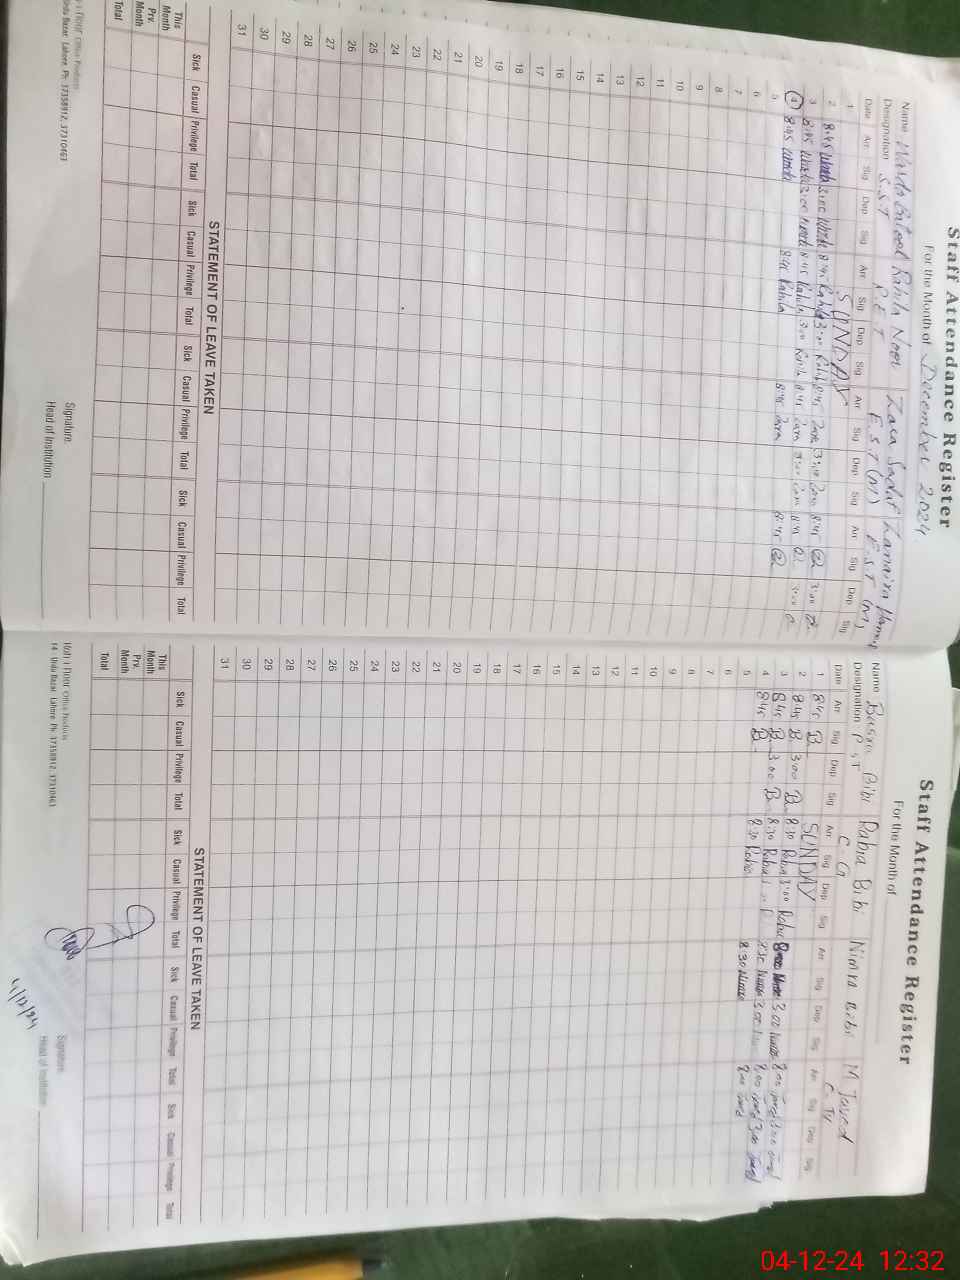 Staff Attendance Register
For the Month of December 2024
Name Warda Batool Rahila Noor Zara Sadaf Zamaira
Designation S.S.T P.E.T E.S.T (M) E.S.T (M)
Date Arr. Sig Dep. Sig Arr Sig Dep. Sig Arr Sig Dep Sig Arr Sig Dep Sig
1 SUNDAY
2 8:45 Warda 3:00 Warda 8:45 Rahila 3:00 Rahila 8:45 Zara 3:00 Zara 8:45 3:00
3 8:45 Warda 3:00 Warda 8:45 Rahila 3:00 Rahila 8:45 Zara 3:00 Zara 8:45 3:00
4 8:45 Warda 8:45 Rahila 8:45 Zara 8:45
5
6
7
8
9
10
11
12
13
14
15
16
17
18
19
20
21
22
23
24
25
26
27
28
29
30
31
STATEMENT OF LEAVE TAKEN
Sick Casual Privilege Total Sick Casual Privilege Total Sick Casual Privilege Total Sick Casual Privilege Total
This Month
Prv. Month
Total
Signature
Head of Institution
Urdu Bazar Lahore. Ph: 37358912, 37310463
Staff Attendance Register
For the Month of
Name Bibi Rabia Bibi Nimra Bibi M Javed
Designation P.S.T C-G C-IV
Date Arr Sig Dep Sig Arr Sig Dep Sig Arr Sig Dep Sig Arr Sig Dep Sig
1 8:45 B SUNDAY
2 8:45 B 3:00 B 8:30 Rabia 3:00 Rabia 3:00 8:00 Javed 3:00 Javed
3 8:45 B 3:00 B 8:30 Rabia 8:30 3:00 8:00 Javed 3:00 Javed
4 8:45 B 8:30 Rabia 8:30 Nimra 8:00 Javed
5
6
7
8
9
10
11
12
13
14
15
16
17
18
19
20
21
22
23
24
25
26
27
28
29
30
31
STATEMENT OF LEAVE TAKEN
Sick Casual Privilege Total Sick Casual Privilege Total Sick Casual Privilege Total Sick Casual Privilege Total
This Month
Prv. Month
Total
Signature
Head of Institution
4/12/24
14 - Urdu Bazar Lahore. Ph: 37358912, 37310463
04-12-24 12:32